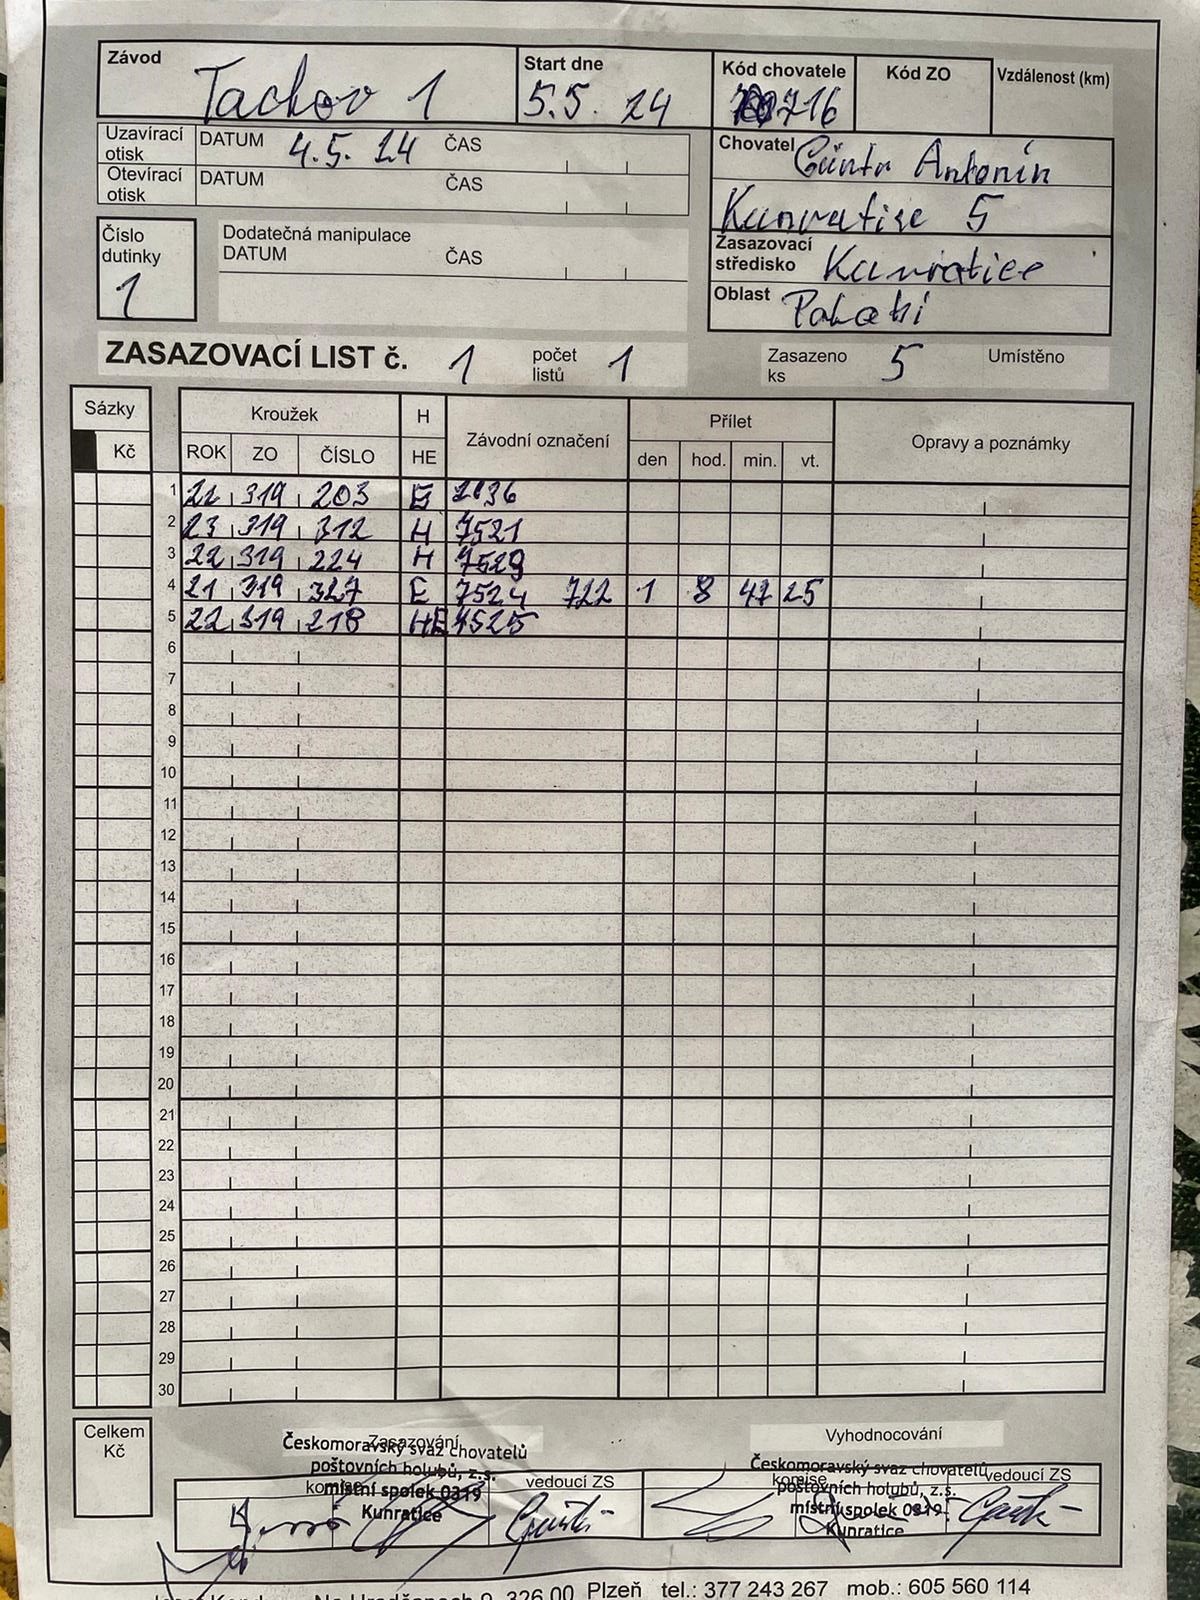 Závod Tachov 1 Start dne 5.5. 24 Kód chovatele 716 Kód ZO Vzdálenost (km)
Uzavírací otisk DATUM 4.5. 24 ČAS
Otevírací otisk DATUM ČAS
Chovatel Güntr Antonín
Kunratice 5
Číslo dutinky 1
Dodatečná manipulace
DATUM ČAS
Zasazovací středisko Kunratice
Oblast Polabí
ZASAZOVACÍ LIST č. 1 počet listů 1 Zasazeno ks 5 Umístěno
Sázky Kroužek H Závodní označení Přílet Opravy a poznámky
Kč ROK ZO ČÍSLO HE den hod. min. vt.
1 22 319 203
2 23 319 312 H 7521
3 22 319 224 H
4 21 319 327 E 7524 722 1 8 47 25
5 22 319 218 HE 7525
6
7
8
9
10
11
12
13
14
15
16
17
18
19
20
21
22
23
24
25
26
27
28
29
30
Celkem Kč
Zasazování Vyhodnocování
Českomoravský svaz chovatelů
poštovních holubů, z.s.
místní spolek 0319
Kunratice
komise vedoucí ZS
Českomoravský svaz chovatelů
poštovních holubů, z.s.
místní spolek 0319
Kunratice
komise vedoucí ZS
326 00 Plzeň tel.: 377 243 267 mob.: 605 560 114